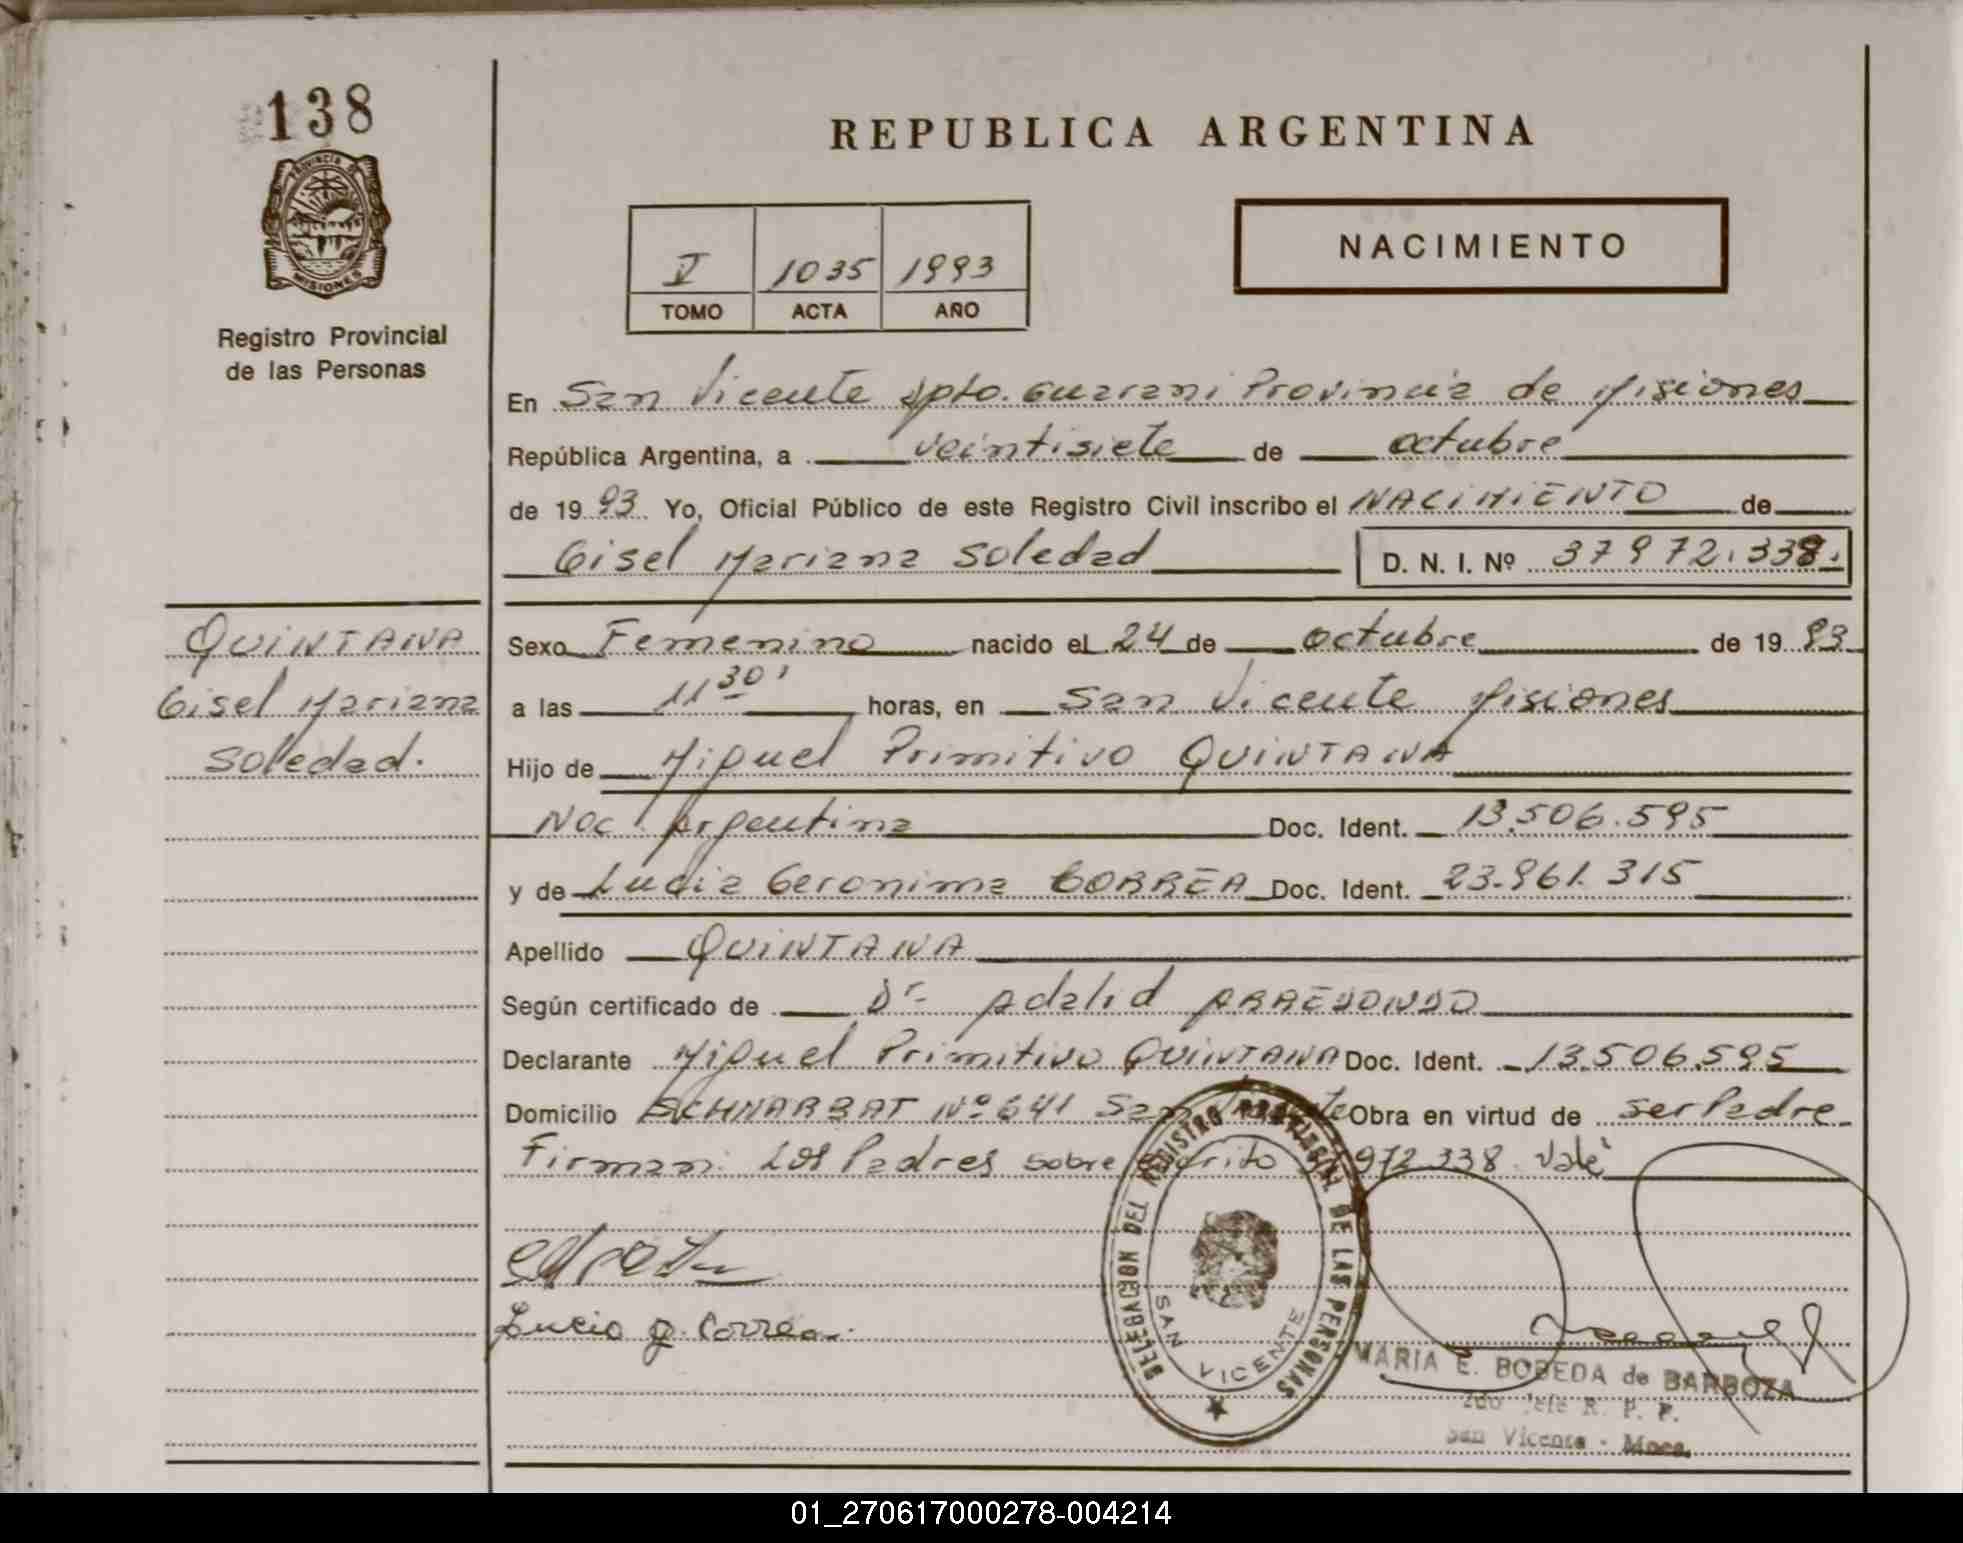 138
PROVINCIA DE
MISIONES
Registro Provincial
de las Personas
REPUBLICA ARGENTINA
V 1035 1993
TOMO ACTA AÑO
NACIMIENTO
En San Vicente Dpto. Guarani Provincia de Misiones
República Argentina, a veintisiete de octubre
de 19 93 Yo, Oficial Público de este Registro Civil inscribo el NACIMIENTO de
Gisel Mariana Soledad D. N. I. Nº 37972.338.
QUINTANA
Gisel Mariana
Soledad.
Sexo Femenino nacido el 24 de octubre de 19 93
a las 11 30' horas, en San Vicente Misiones
Hijo de Miguel Primitivo QUINTANA
Nac. Argentina Doc. Ident. 13.506.595
y de Lucia Geronima CORREA Doc. Ident. 23.961.315
Apellido QUINTANA
Según certificado de Dr. Adalid ARREDONDO
Declarante Miguel Primitivo QUINTANA Doc. Ident. 13.506.595
Domicilio SCHNARBAT Nº 641 San Vicente Obra en virtud de ser Padre
Firman: Los Padres sobre escrito 972.338 Vale
Lucia g. Correa.
DELEGACION DEL REGISTRO PROVINCIAL DE LAS PERSONAS
SAN VICENTE
MARIA E. BOBEDA de BARBOZA
2do Jefe R. P. P.
San Vicente - Mnes.
01_270617000278-004214